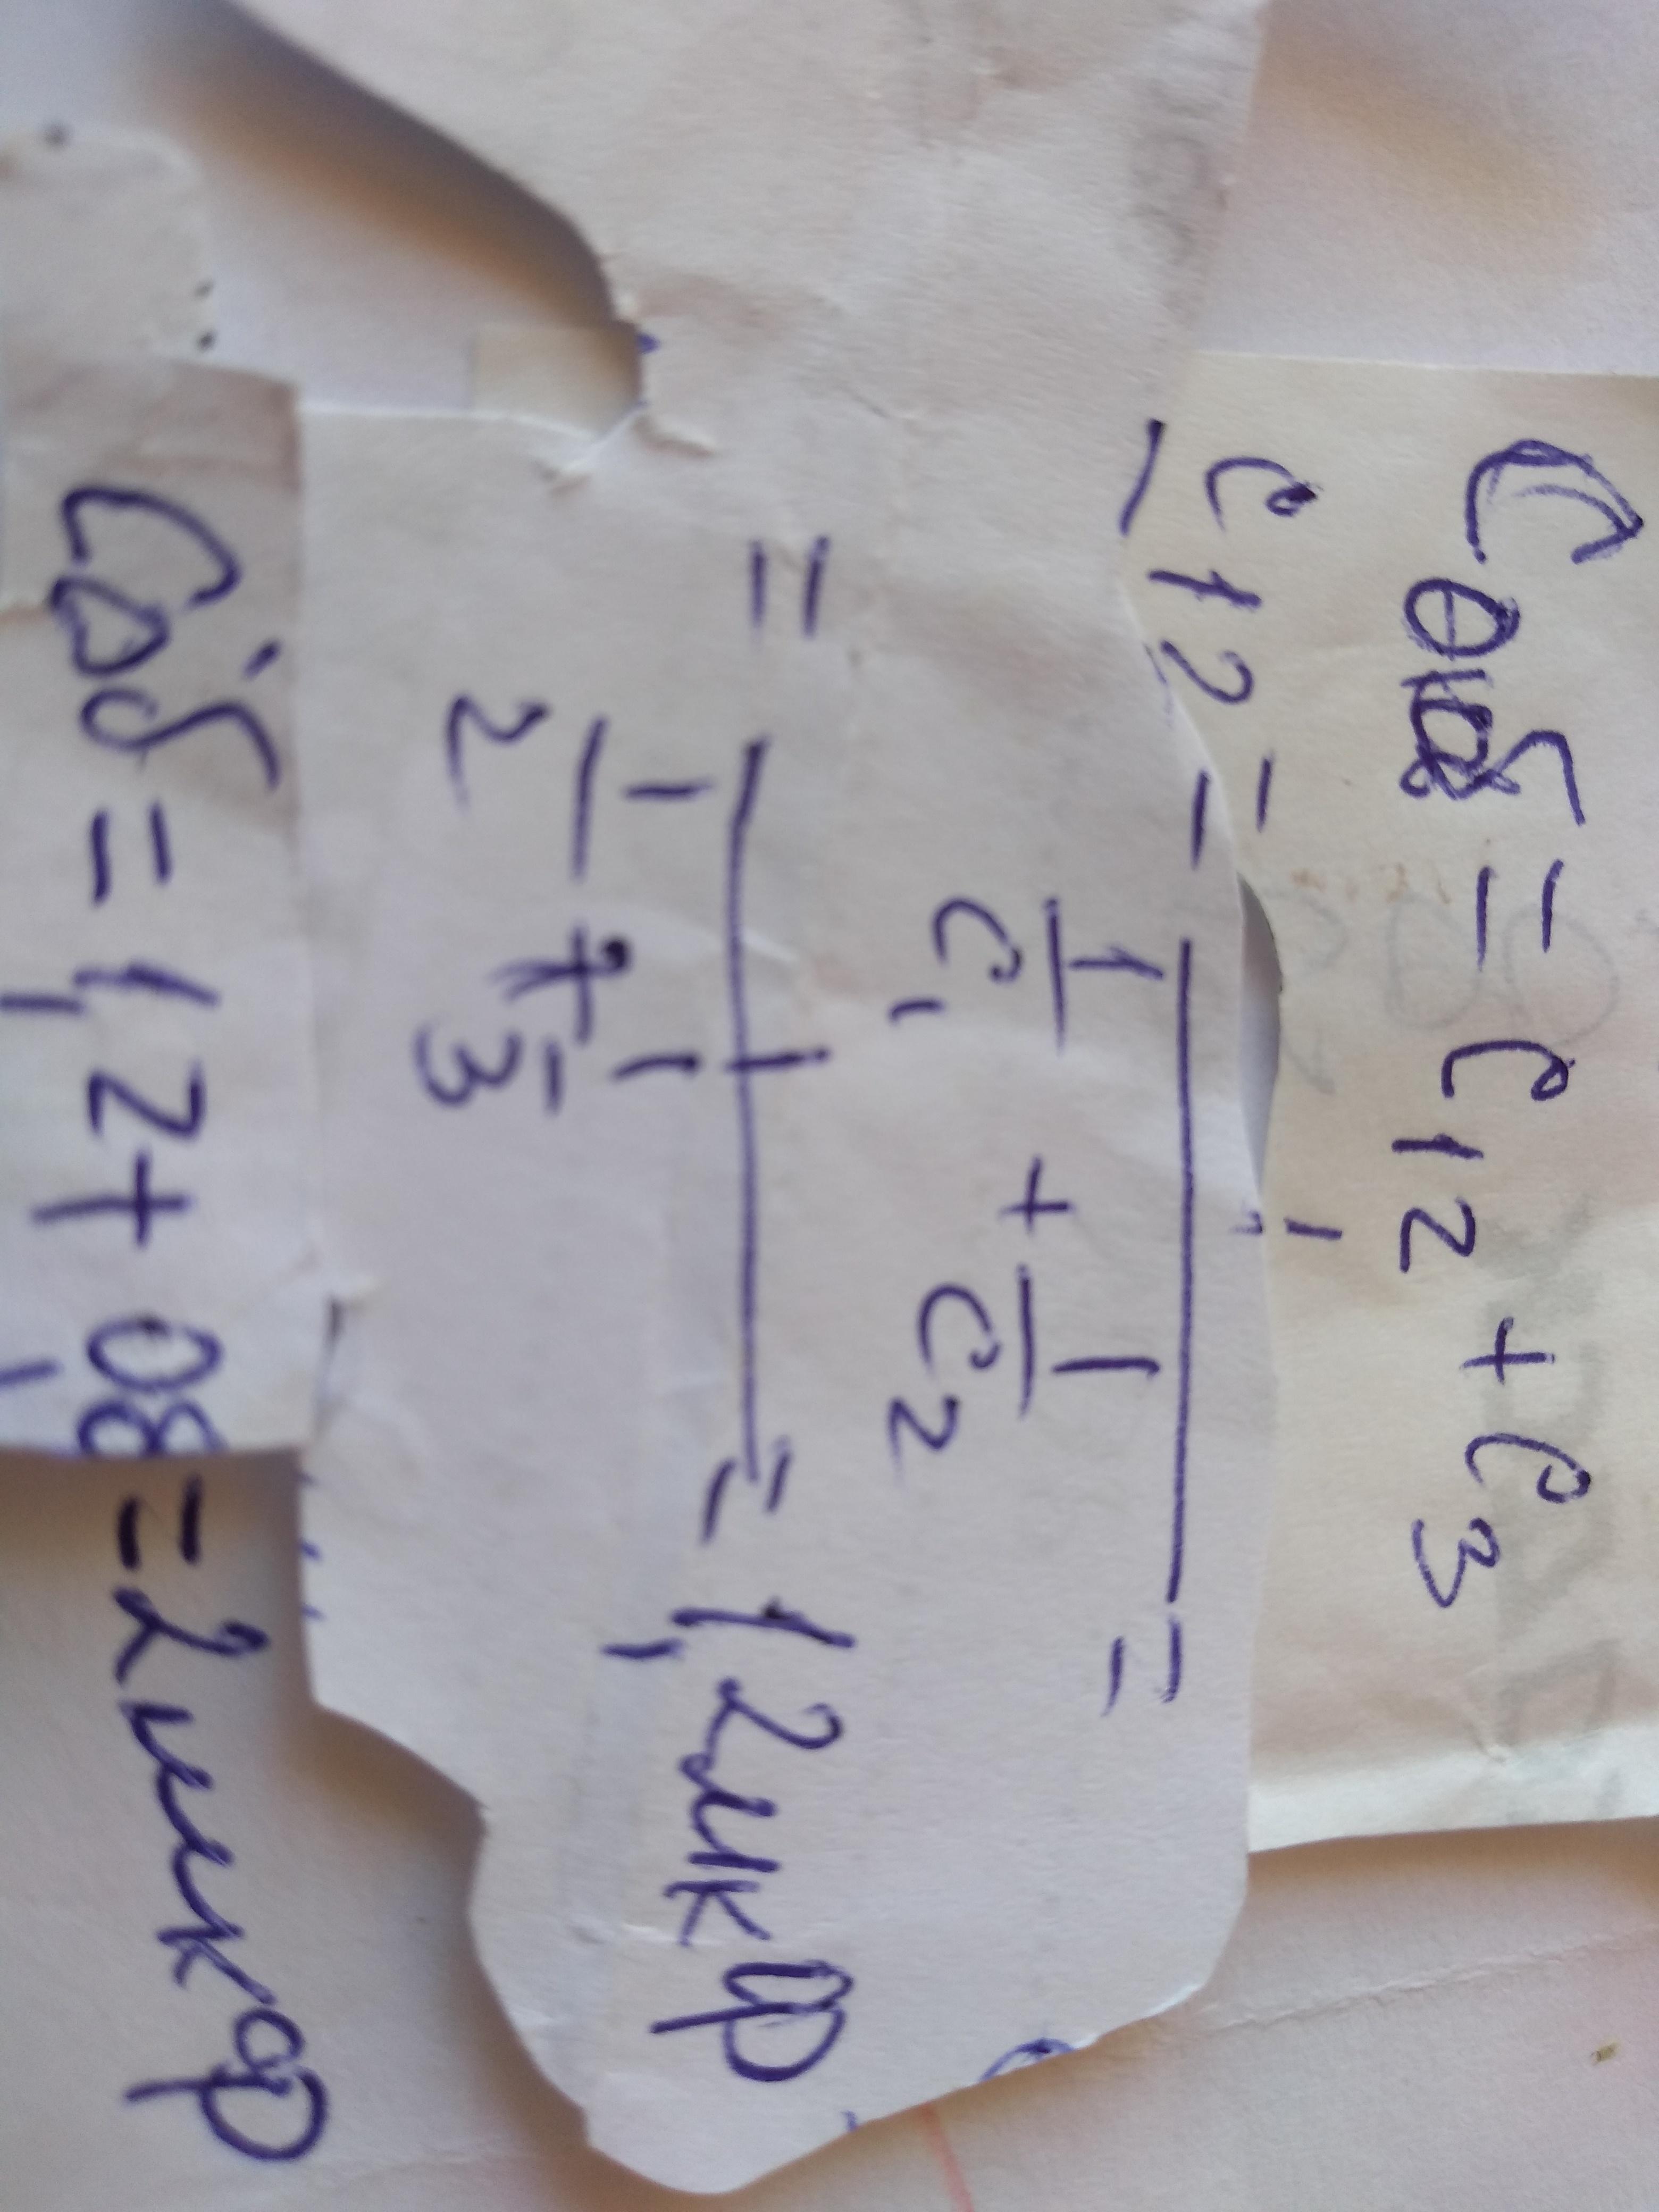 Cоб = C12 + C3
1
C12 = ——— =
1/C1 + 1/C2
= 1 / (1/2 + 1/3) = 1,2мкф
Cоб = 1,2 + 0,8 = 2мкф